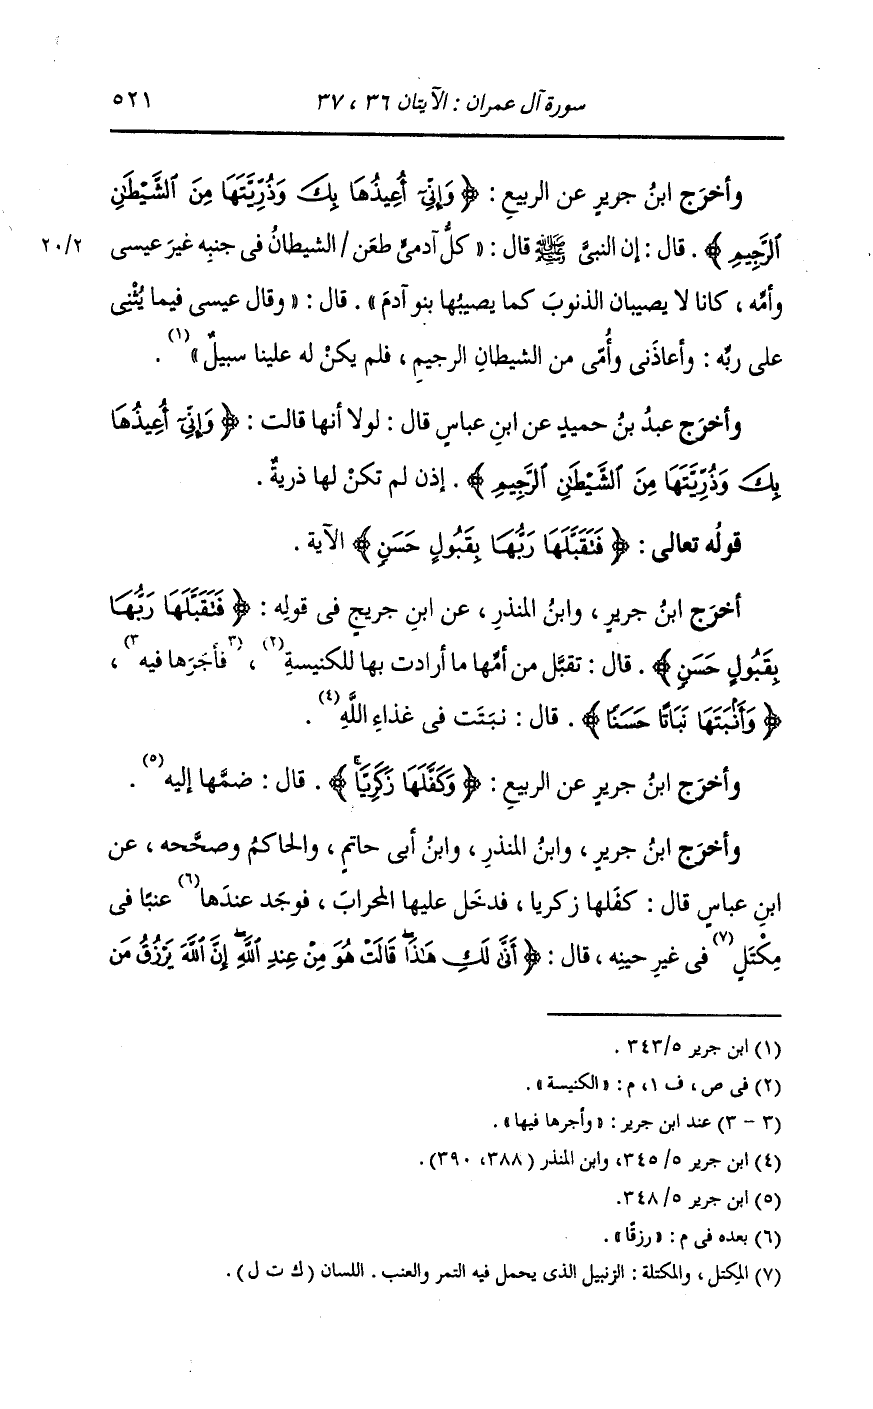 سورة آل عمران : الآيتان ٣٦ ، ٣٧ ٥٢١
وأخرَج ابنُ جريرٍ عن الربيعِ : ﴿ وَإِنِّىٓ أُعِيذُهَا بِكَ وَذُرِّيَّتَهَا مِنَ ٱلشَّيْطَٰنِ
ٱلرَّجِيمِ ﴾ . قال : إن النبىَّ ﷺ قال : « كلُّ آدمىٍّ طعَن / الشيطانُ فى جنبِه غيرَ عيسى ٢٠/٢
وأمِّه ، كانا لا يصيبان الذنوبَ كما يصيبُها بنو آدمَ » . قال : « وقال عيسى فيما يُثْنِى
على ربِّه : وأعاذَنى وأُمِّى من الشيطانِ الرجيمِ ، فلم يكنْ له علينا سبيلٌ »(١) .
وأخرَج عبدُ بنُ حميدٍ عن ابنِ عباسٍ قال : لولا أنها قالت : ﴿ وَإِنِّىٓ أُعِيذُهَا
بِكَ وَذُرِّيَّتَهَا مِنَ ٱلشَّيْطَٰنِ ٱلرَّجِيمِ ﴾ . إذن لم تكنْ لها ذريةٌ .
قولُه تعالى : ﴿ فَتَقَبَّلَهَا رَبُّهَا بِقَبُولٍ حَسَنٍ ﴾ الآية .
أخرَج ابنُ جريرٍ ، وابنُ المنذرِ ، عن ابنِ جريجٍ فى قولِه : ﴿ فَتَقَبَّلَهَا رَبُّهَا
بِقَبُولٍ حَسَنٍ ﴾ . قال : تقبَّل من أمِّها ما أرادت بها للكنيسةِ(٢) ، (٣فأَجَرَها فيه٣) ،
﴿ وَأَنۢبَتَهَا نَبَاتًا حَسَنًا ﴾ . قال : نبَتَت فى غذاءِ اللَّهِ(٤) .
وأخرَج ابنُ جريرٍ عن الربيعِ : ﴿ وَكَفَّلَهَا زَكَرِيَّاۖ ﴾ . قال : ضمَّها إليه(٥) .
وأخرَج ابنُ جريرٍ ، وابنُ المنذرِ ، وابنُ أبى حاتمٍ ، والحاكمُ وصحَّحه ، عن
ابنِ عباسٍ قال : كفَلها زكريا ، فدخَل عليها المحرابَ ، فوجَد عندَها(٦) عنبًا فى
مِكْتَلٍ(٧) فى غيرِ حينِه ، قال : ﴿ أَنَّىٰ لَكِ هَٰذَاۖ قَالَتْ هُوَ مِنْ عِندِ ٱللَّهِۖ إِنَّ ٱللَّهَ يَرْزُقُ مَن
(١) ابن جرير ٣٤٣/٥ .
(٢) فى ص ، ف ١ ، م : « الكنيسة » .
(٣ - ٣) عند ابن جرير : « وأجرها فيها » .
(٤) ابن جرير ٣٤٥/٥ ، وابن المنذر ( ٣٨٨ ، ٣٩٠ ) .
(٥) ابن جرير ٣٤٨/٥ .
(٦) بعده فى م : « رزقًا » .
(٧) المكتل ، والمكتلة : الزنبيل الذى يحمل فيه التمر والعنب . اللسان ( ك ت ل ) .